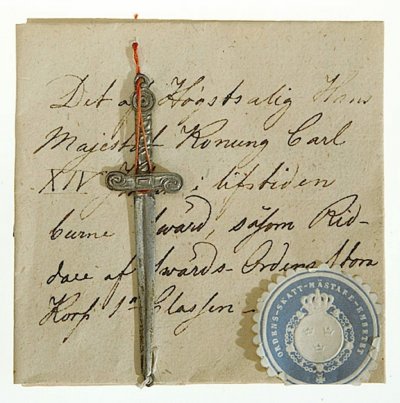 Det af Högstsalig Hans
Majestät Konung Carl
XIV i lifstiden
burne Swärd, såsom Rid-
dare af Swärds-Ordens Stora
Kors 1a Classen -
ORDENS-SKATT-MÄSTARE-EMBETET